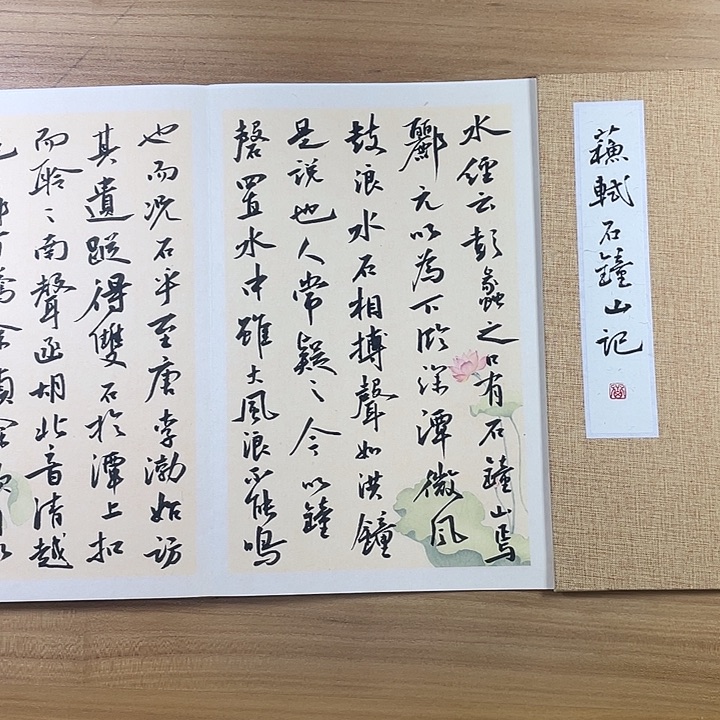 蘓軾石鐘山記
水經云彭蠡之口有石鐘山焉
酈元以為下臨深潭微風
鼓浪水石相搏聲如洪鐘
是說也人常疑之今以鐘
磬置水中雖大風浪不能鳴
也而况石乎至唐李渤始訪
其遺蹤得雙石於潭上扣
而聆之南聲函胡北音清越